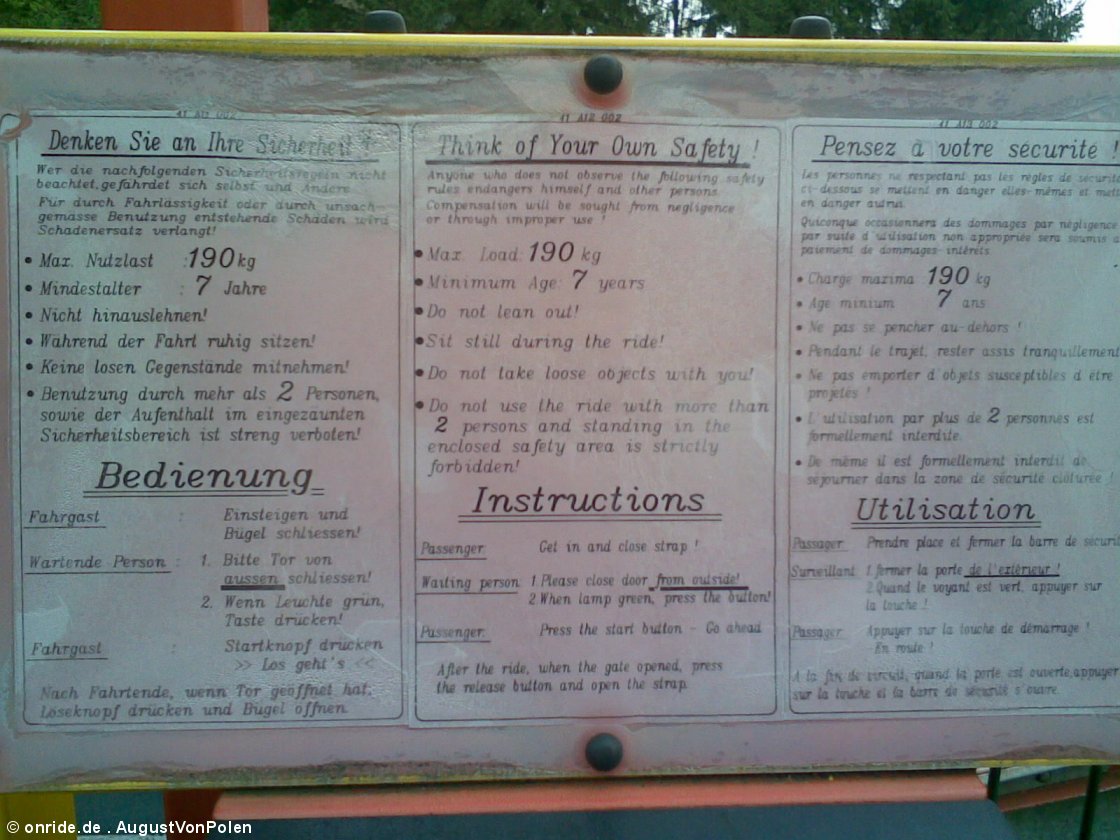 41 AI2 002
Denken Sie an Ihre Sicherheit !
Wer die nachfolgenden Sicherheitsregeln nicht
beachtet, gefährdet sich selbst und Andere.
Für durch Fahrlässigkeit oder durch unsach-
gemässe Benutzung entstehende Schäden wird
Schadenersatz verlangt!
• Max. Nutzlast : 190 kg
• Mindestalter : 7 Jahre
• Nicht hinauslehnen!
• Während der Fahrt ruhig sitzen!
• Keine losen Gegenstände mitnehmen!
• Benutzung durch mehr als 2 Personen,
sowie der Aufenthalt im eingezäunten
Sicherheitsbereich ist streng verboten!
Bedienung
Fahrgast : Einsteigen und
Bügel schliessen!
Wartende Person : 1. Bitte Tor von
aussen schliessen!
2. Wenn Leuchte grün,
Taste drücken!
Fahrgast : Startknopf drücken
>> Los geht's <<
Nach Fahrtende, wenn Tor geöffnet hat,
Löseknopf drücken und Bügel öffnen.
41 AI2 002
Think of Your Own Safety !
Anyone who does not observe the following safety
rules endangers himself and other persons.
Compensation will be sought from negligence
or through improper use !
• Max. Load: 190 kg
• Minimum Age: 7 years
• Do not lean out!
• Sit still during the ride!
• Do not take loose objects with you!
• Do not use the ride with more than
2 persons and standing in the
enclosed safety area is strictly
forbidden!
Instructions
Passenger Get in and close strap !
Waiting person 1. Please close door from outside!
2. When lamp green, press the button!
Passenger: Press the start button - Go ahead
After the ride, when the gate opened, press
the release button and open the strap.
41 AI2 002
Pensez à votre sécurité !
Les personnes ne respectant pas les règles de sécurité
ci-dessous se mettent en danger elles-mêmes et
en danger autrui.
Quiconque occasionnera des dommages par négligence
par suite d'utilisation non appropriée sera soumis
paiement de dommages-intérêts.
• Charge maxima 190 kg
• Age minium 7 ans
• Ne pas se pencher au-dehors !
• Pendant le trajet, rester assis tranquillement
• Ne pas emporter d'objets susceptibles d'être
projetés !
• L'utilisation par plus de 2 personnes est
formellement interdite.
• De même il est formellement interdit de
séjourner dans la zone de sécurité clôturée
Utilisation
Passager Prendre place et fermer la barre de
Surveillant 1. fermer la porte de l'extérieur !
2. Quand le voyant est vert, appuyer sur
la touche !
Passager Appuyer sur la touche de démarrage !
En route !
A la fin de circuit, quand la porte est ouverte, appuyer
sur la touche et la barre de sécurité s'ouvre.
© onride.de . AugustVonPolen